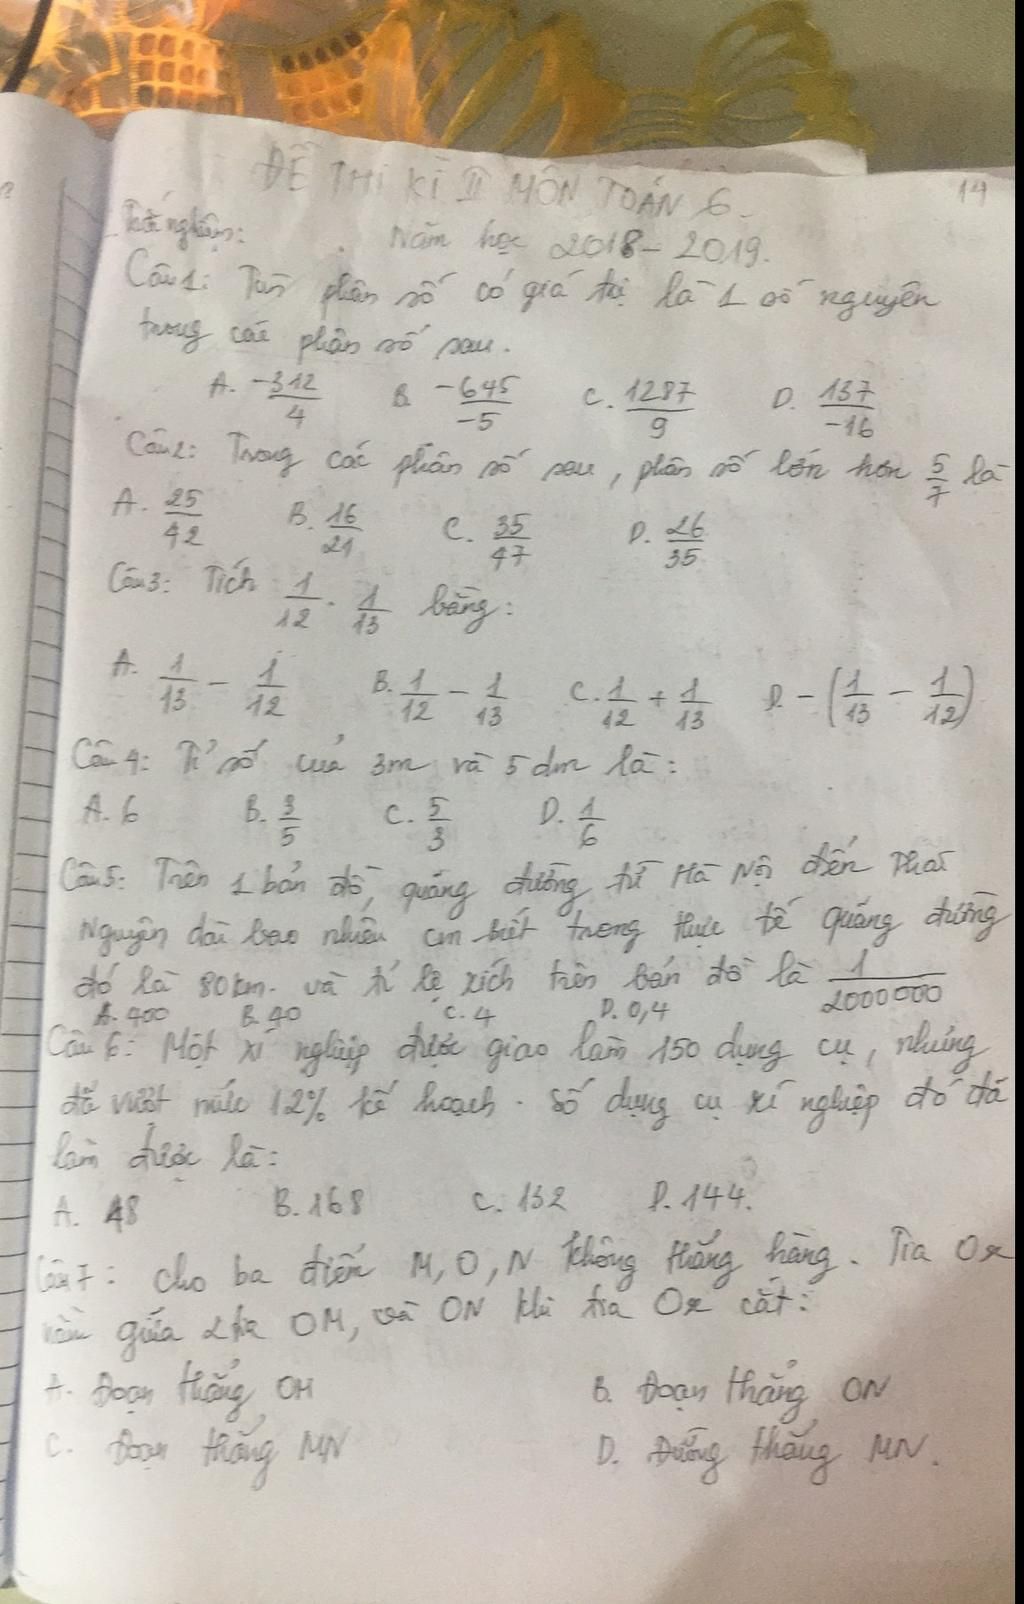 ĐỀ THI KÌ II MÔN TOÁN 6.
14
Trắc nghiệm:
Năm học 2018 - 2019.
Câu 1: Tìm phân số có giá trị là 1 số nguyên
trong các phân số sau.
A. -312/4 B. -645/-5 C. 1287/9 D. 137/-16
Câu 2: Trong các phân số sau, phân số lớn hơn 5/7 là
A. 25/42 B. 16/21 C. 35/47 D. 26/35
Câu 3: Tích 1/12 . 1/13 bằng:
A. 1/13 - 1/12 B. 1/12 - 1/13 C. 1/12 + 1/13 D. -(1/13 - 1/12)
Câu 4: Tỉ số của 3m và 5dm là:
A. 6 B. 3/5 C. 5/3 D. 1/6
Câu 5: Trên 1 bản đồ, quãng đường từ Hà Nội đến Thái
Nguyên dài bao nhiêu cm biết trong thực tế quãng đường
đó là 80km. và tỉ lệ xích trên bản đồ là 1/2000000
A. 400 B. 40 C. 4 D. 0,4
Câu 6: Một xí nghiệp được giao làm 150 dụng cụ, nhưng
đã vượt mức 12% kế hoạch. Số dụng cụ xí nghiệp đó đã
làm được là:
A. 48 B. 168 C. 132 D. 144.
Câu 7: Cho ba điểm M, O, N không thẳng hàng. Tia Ox
nằm giữa 2 tia OM, và ON khi tia Ox cắt:
A. Đoạn thẳng OM B. Đoạn thẳng ON
C. Đoạn thẳng MN D. Đường thẳng MN.